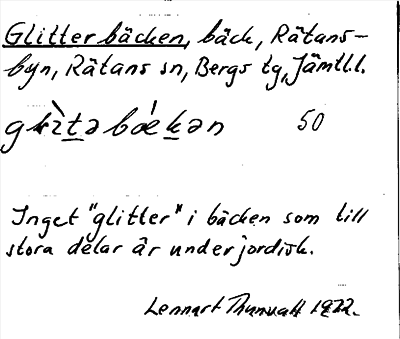 Glitterbäcken, bäck, Rätans-
byn, Rätans sn, Bergs tg, Jämtl.l.
50
Inget "glitter" i bäcken som till
stora delar är underjordisk.
Lennart 1972.